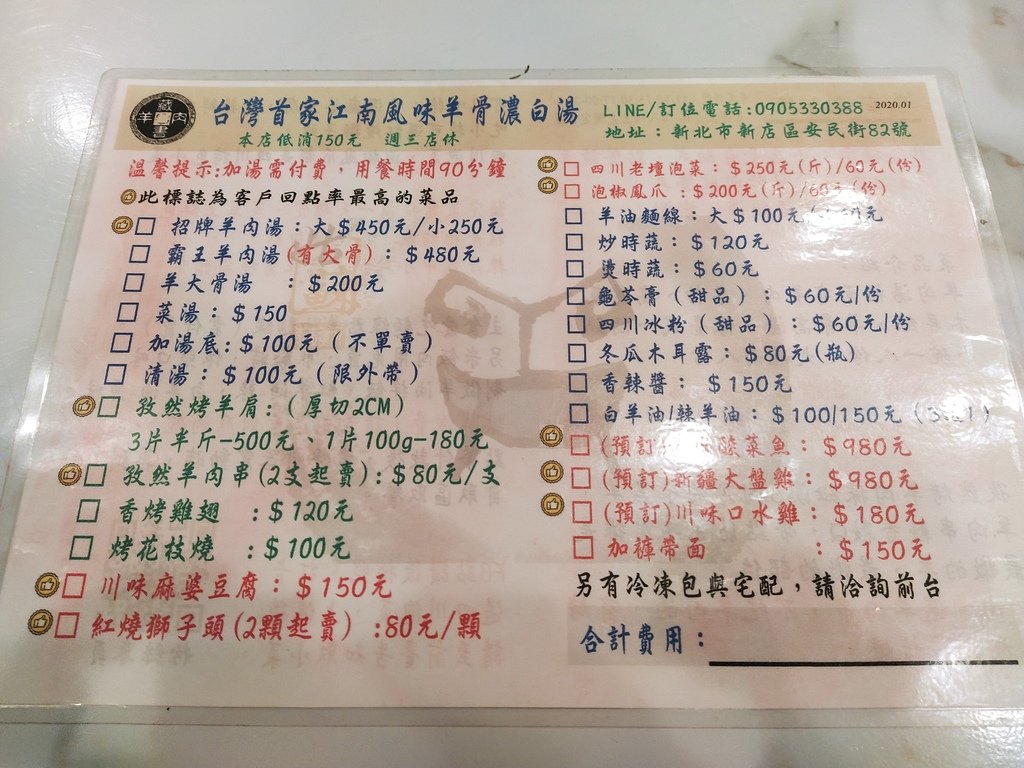 藏書羊肉
台灣首家江南風味羊骨濃白湯
本店低消150元 週三店休
LINE/訂位電話:0905330388 2020.01
地址：新北市新店區安民街82號
溫馨提示:加湯需付費，用餐時間90分鐘
此標誌為客戶回點率最高的菜品
招牌羊肉湯：大$450元/小250元
霸王羊肉湯(有大骨)：$480元
羊大骨湯 ：$200元
菜湯：$150
加湯底:$100元（不單賣）
清湯：$100元（限外帶）
孜然烤羊肩:（厚切2CM）
3片半斤-500元、1片100g-180元
孜然羊肉串(2支起賣):$80元/支
香烤雞翅 :$120元
烤花枝燒 :$100元
川味麻婆豆腐：$150元
紅燒獅子頭(2顆起賣）:80元/顆
四川老壇泡菜：$250元(斤)/60元(份)
泡椒鳳爪：$200元(斤)/60元(份)
羊油麵線：大$100元
炒時蔬：$120元
燙時蔬：$60元
龜苓膏（甜品）：$60元/份
四川冰粉（甜品）：$60元/份
冬瓜木耳露：$80元(瓶)
香辣醬： $150元
白羊油/辣羊油：$100/150元
(預訂)酸菜魚：$980元
(預訂)新疆大盤雞：$980元
(預訂)川味口水雞：$180元
加褲帶面 ：$150元
另有冷凍包與宅配，請洽詢前台
合計費用：